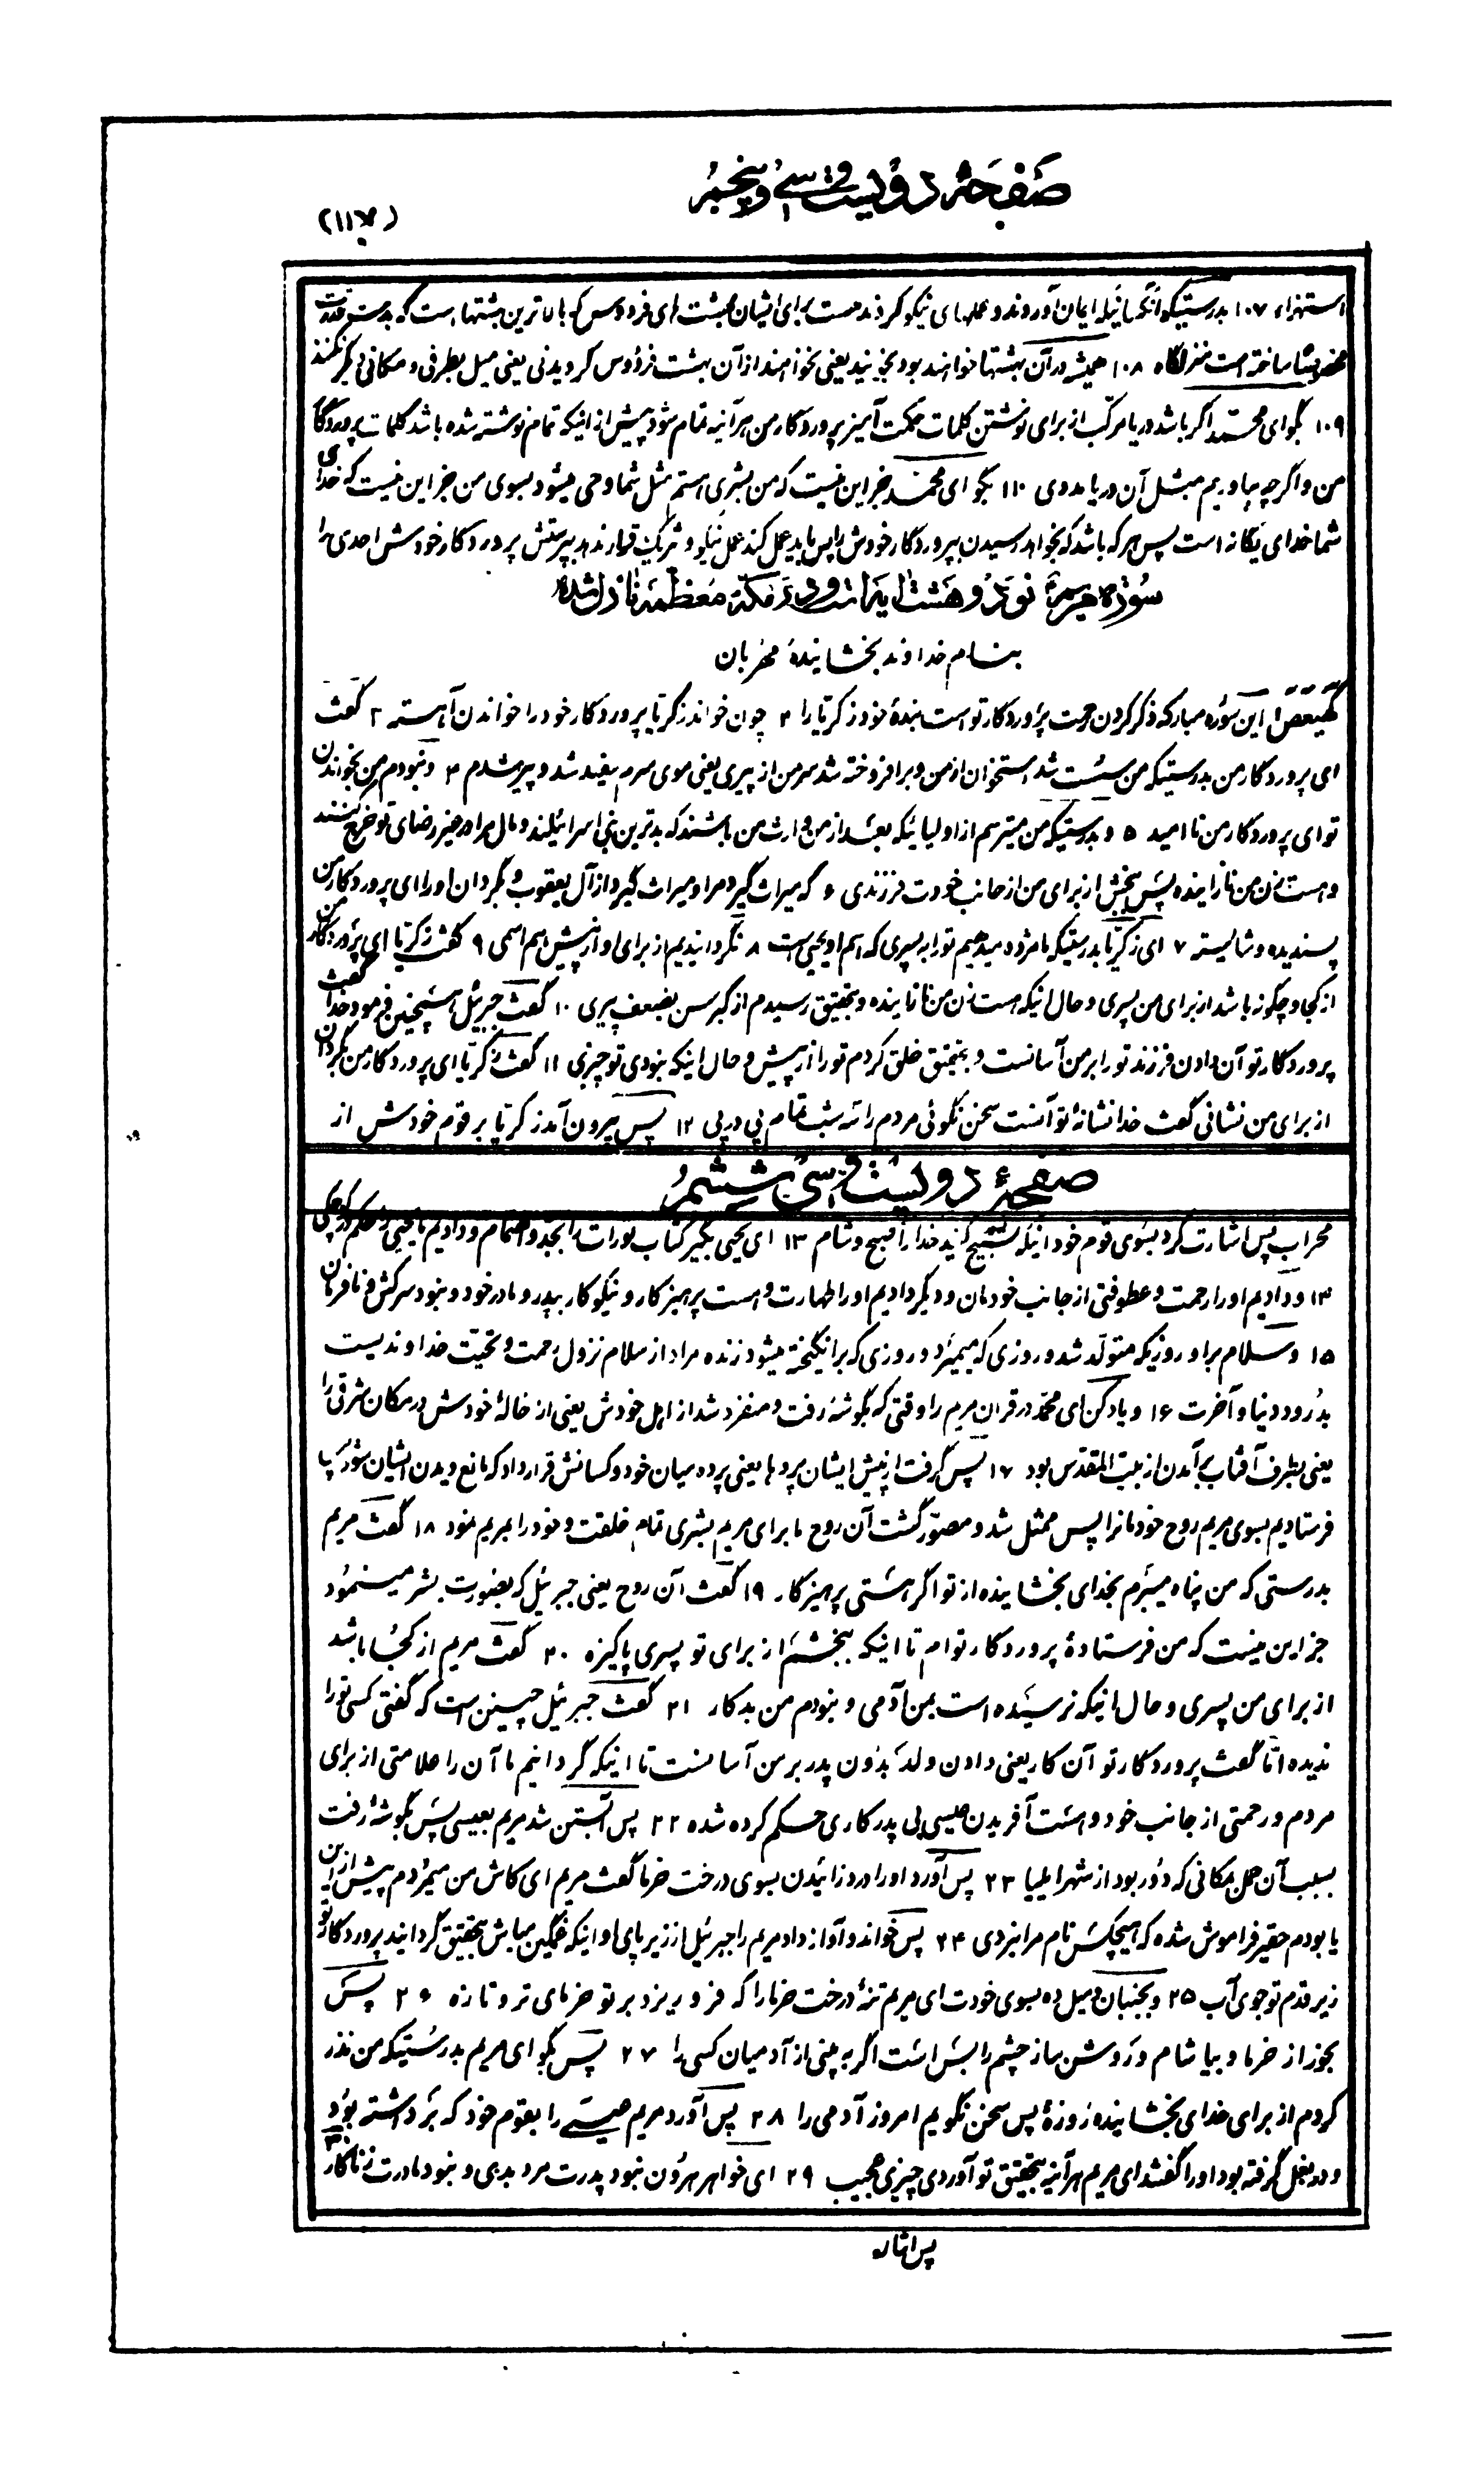 صفحهٔ دویست و سی و پنجم
(۱۱۷)
استهزاء ۱۰۷ بدرستیکه آنکسانیکه ایمان آوردند و عملهای نیکو کردند هست برای ایشان بهشت های فردوس که بالاترین بهشتها است که بدست قدرت
ساخته است منزلگاه ۱۰۸ همیشه در آن بهشتها خواهند بود نجویند یعنی نخواهند از آن بهشت فردوس گردیدنی یعنی میل بطرفی و مکانی دیگر نکنند
۱۰۹ بگو ای محمّد اگر باشد دریا مرکّب از برای نوشتن کلمات حکمت آمیز پروردگار من هرآینه تمام شود پیش از اینکه تمام نوشته شده باشد کلمات پروردگار
من و اگرچه بیاوریم مبثل آن دریا مددی ۱۱۰ بگو ای محمّد جز این نیست که من بشری هستم مثل شما وحی میشود بسوی من جز این نیست که خدای
شما خدای یگانه است پس هر که باشد که بخواهد رسیدن بپروردگار خودش را پس باید عمل کند عمل نیکو و شریک قرار ندهد بپرستش پروردگار خودش احدی را
سورهٔ مریم نود و هشت آیه است و در مکّهٔ معظّمه نازل شده
بنام خداوند بخشایندهٔ مهربان
کهیعص ۱ این سوره مبارکه ذکر کردن رحمت پروردگار تو است بندهٔ خود زکریّا را ۲ چون خواند زکریّا پروردگار خود را خواندن آهسته ۳ گفت
ای پروردگار من بدرستیکه من سست شد استخوان از من و برافروخته شد سر من از پیری یعنی موی سرم سفید شد و پیر شدم ۴ و نبودم من بخواندن
تو ای پروردگار من ناامید ۵ و بدرستیکه من میترسم از اولیائیکه بعد از من وارث من باشند که بدترین بنی اسرائیلند و مال مرا در غیر رضای تو خرج کنند
و هست زن من نازاینده پس ببخش از برای من از جانب خودت فرزندی ۶ که میراث گیرد مرا و میراث گیرد از آل یعقوب و بگردان او را ای پروردگار من
پسندیده و شایسته ۷ ای زکریّا بدرستیکه ما مژده میدهیم تو را به پسری که اسم او یحیی است ۸ نگردانیدیم از برای او از پیش هم اسمی ۹ گفت زکریّا ای پروردگار من
از کجا و چگونه باشد از برای من پسری و حال اینکه هست زن من نازاینده و بتحقیق رسیدم از کبر سن بضعف پیری ۱۰ گفت جبرئیل همچنین فرمود خدا گفت
پروردگار تو آن دادن فرزند تو را بر من آسانست و بتحقیق خلق کردم تو را از پیش و حال اینکه نبودی تو چیزی ۱۱ گفت زکریّا ای پروردگار من بگردان
از برای من نشانی گفت خدا نشانهٔ تو آنست سخن نگوئی مردم را سه شب تمام پی در پی ۱۲ پس بیرون آمد زکریّا بر قوم خودش از
صفحهٔ دویست و سی و ششم
محراب پس اشارت کرد بسوی قوم خود اینکه تسبیح کنید خدا را صبح و شام ۱۳ ای یحیی بگیر کتاب تورات را بجد و اهتمام و دادیم ما یحیی را حکم در کودکی
۱۴ و دادیم او را رحمت و عطوفتی از جانب خودمان و دیگر دادیم او را طهارت و هست پرهیزکار و نیکوکار بپدر و مادر خود و نبود سرکش و نافرمان
۱۵ و سلام بر او روزیکه متولّد شد و روزی که میمیرد و روزی که برانگیخته میشود زنده مراد از سلام نزول رحمت و تحیّت خداوندیست
بدو در دنیا و آخرت ۱۶ و یاد کن ای محمّد در قرآن مریم را وقتی که بگوشه رفت و منفرد شد از اهل خودش یعنی از خالهٔ خودش در مکان شرقی را
یعنی بطرف آفتاب برآمدن از بیت المقدّس بود ۱۷ پس گرفت از پیش ایشان پردها یعنی پرده میان خود و کسانش قرار داد که مانع دیدن ایشان شود پس
فرستادیم بسوی مریم روح خودمانرا پس ممثل شد و مصوّر گشت آن روح ما برای مریم بشری تمام خلقت و خود را بمریم نمود ۱۸ گفت مریم
بدرستی که من پناه میبرم بخدای بخشاینده از تو اگر هستی پرهیزکار ۱۹ گفت آن روح یعنی جبرئیل که بصورت بشر مینمود
جز این نیست که من فرستادهٔ پروردگار توام تا اینکه ببخشم از برای تو پسری پاکیزه ۲۰ گفت مریم از کجا باشد
از برای من پسری و حال اینکه نرسیده است بمن آدمی و نبودم من بدکار ۲۱ گفت جبرئیل چنین است که گفتی کسی تو را
ندیده امّا گفت پروردگار تو آن کار یعنی دادن ولد بدون پدر بر من آسانست تا اینکه گردانیم ما آن را علامتی از برای
مردم و رحمتی از جانب خود و هست آفریدن عیسی بی پدر کاری حکم کرده شده ۲۲ پس آبستن شد مریم بعیسی پس بگوشه رفت
بسبب آن حمل بمکانی که دور بود از شهر ایلیا ۲۳ پس آورد او را درد زائیدن بسوی درخت خرما گفت مریم ای کاش من میمردم پیش از این
یا بودم حقیر فراموش شده که هیچکس نام مرا نبردی ۲۴ پس خواند و آواز داد مریم را جبرئیل از زیر پای او اینکه غمگین مباش بتحقیق گردانید پروردگار تو
زیر قدم تو جوی آب ۲۵ و بجنبان و میل ده بسوی خودت ای مریم تنهٔ درخت خرما را که فرو ریزد بر تو خرمای تر و تازه ۲۶ پس
بخور از خرما و بیاشام و روشن ساز چشم را پس است اگر به بینی از آدمیان کسی را ۲۷ پس بگو ای مریم بدرستیکه من نذر
کردم از برای خدای بخشاینده روزهٔ پس سخن نگویم امروز آدمی را ۲۸ پس آورد مریم عیسی را بقوم خود که برداشته بود
و در بغل گرفته بود او را گفتند ای مریم هرآینه بتحقیق تو آوردی چیزی عجیب ۲۹ ای خواهر هرون نبود پدرت مرد بدی و نبود مادرت زناکار ۳۰
پس اشاره